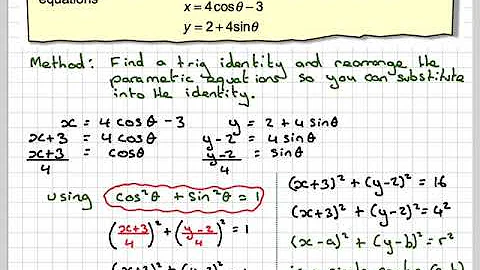 equations
x = 4cosθ − 3
y = 2 + 4sinθ
Method: Find a trig identity and rearrange the
parametric equations so you can substitute
into the identity.
x = 4 cosθ - 3 y = 2 + 4 sinθ
x+3 = 4 cosθ y-2 = 4 sinθ
x+3/4 = cosθ y-2/4 = sinθ
using cos²θ + sin²θ = 1
(x+3/4)² + (y-2/4)² = 1
(x+3)² + (y-2)² = 16
(x+3)² + (y-2)² = 4²
(x-a)² + (y-b)² = r²